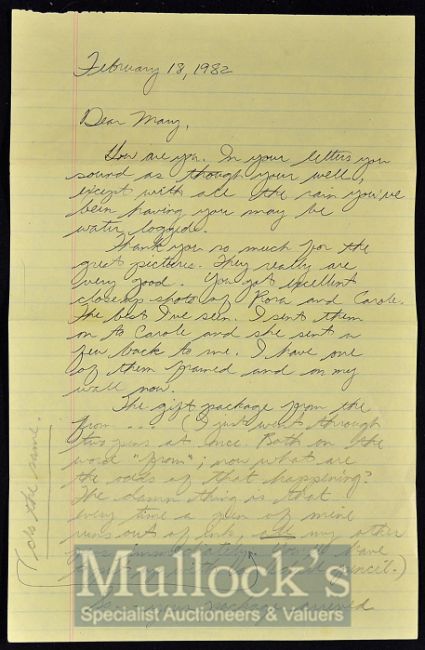 February 13, 1982
Dear Mary,
How are you. In your letters you
sound as though your well,
except with all the rain you've
been having you may be
water logged.
Thank you so much for the
great pictures. They really are
very good. You got excellent
closeup shots of Rora and Carole.
The best I've seen. I sent them
on to Carole and she sent a
few back to me. I have one
of them framed and on my
wall now.
The gift package from the
from ... (I just went through
two pens at once. Both on the
word "from"; now what are
the odds of that happening?
The damn thing is that
every time a pen of mine
runs out of ink, all my other
immediately have
pencil.)
package arrived
I do the same.
Mullock's
Specialist Auctioneers & Valuers